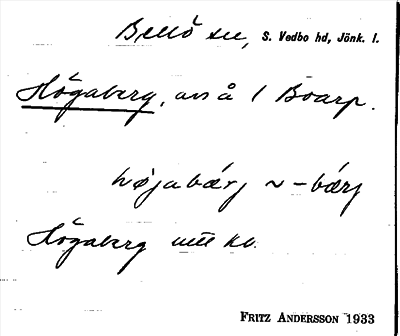 Bellö sn, S. Vedbo hd, Jönk. l.
Högaberg, avs å 1 Boarp.
højabærj ~ -bærj
Högaberg
FRITZ ANDERSSON 1933